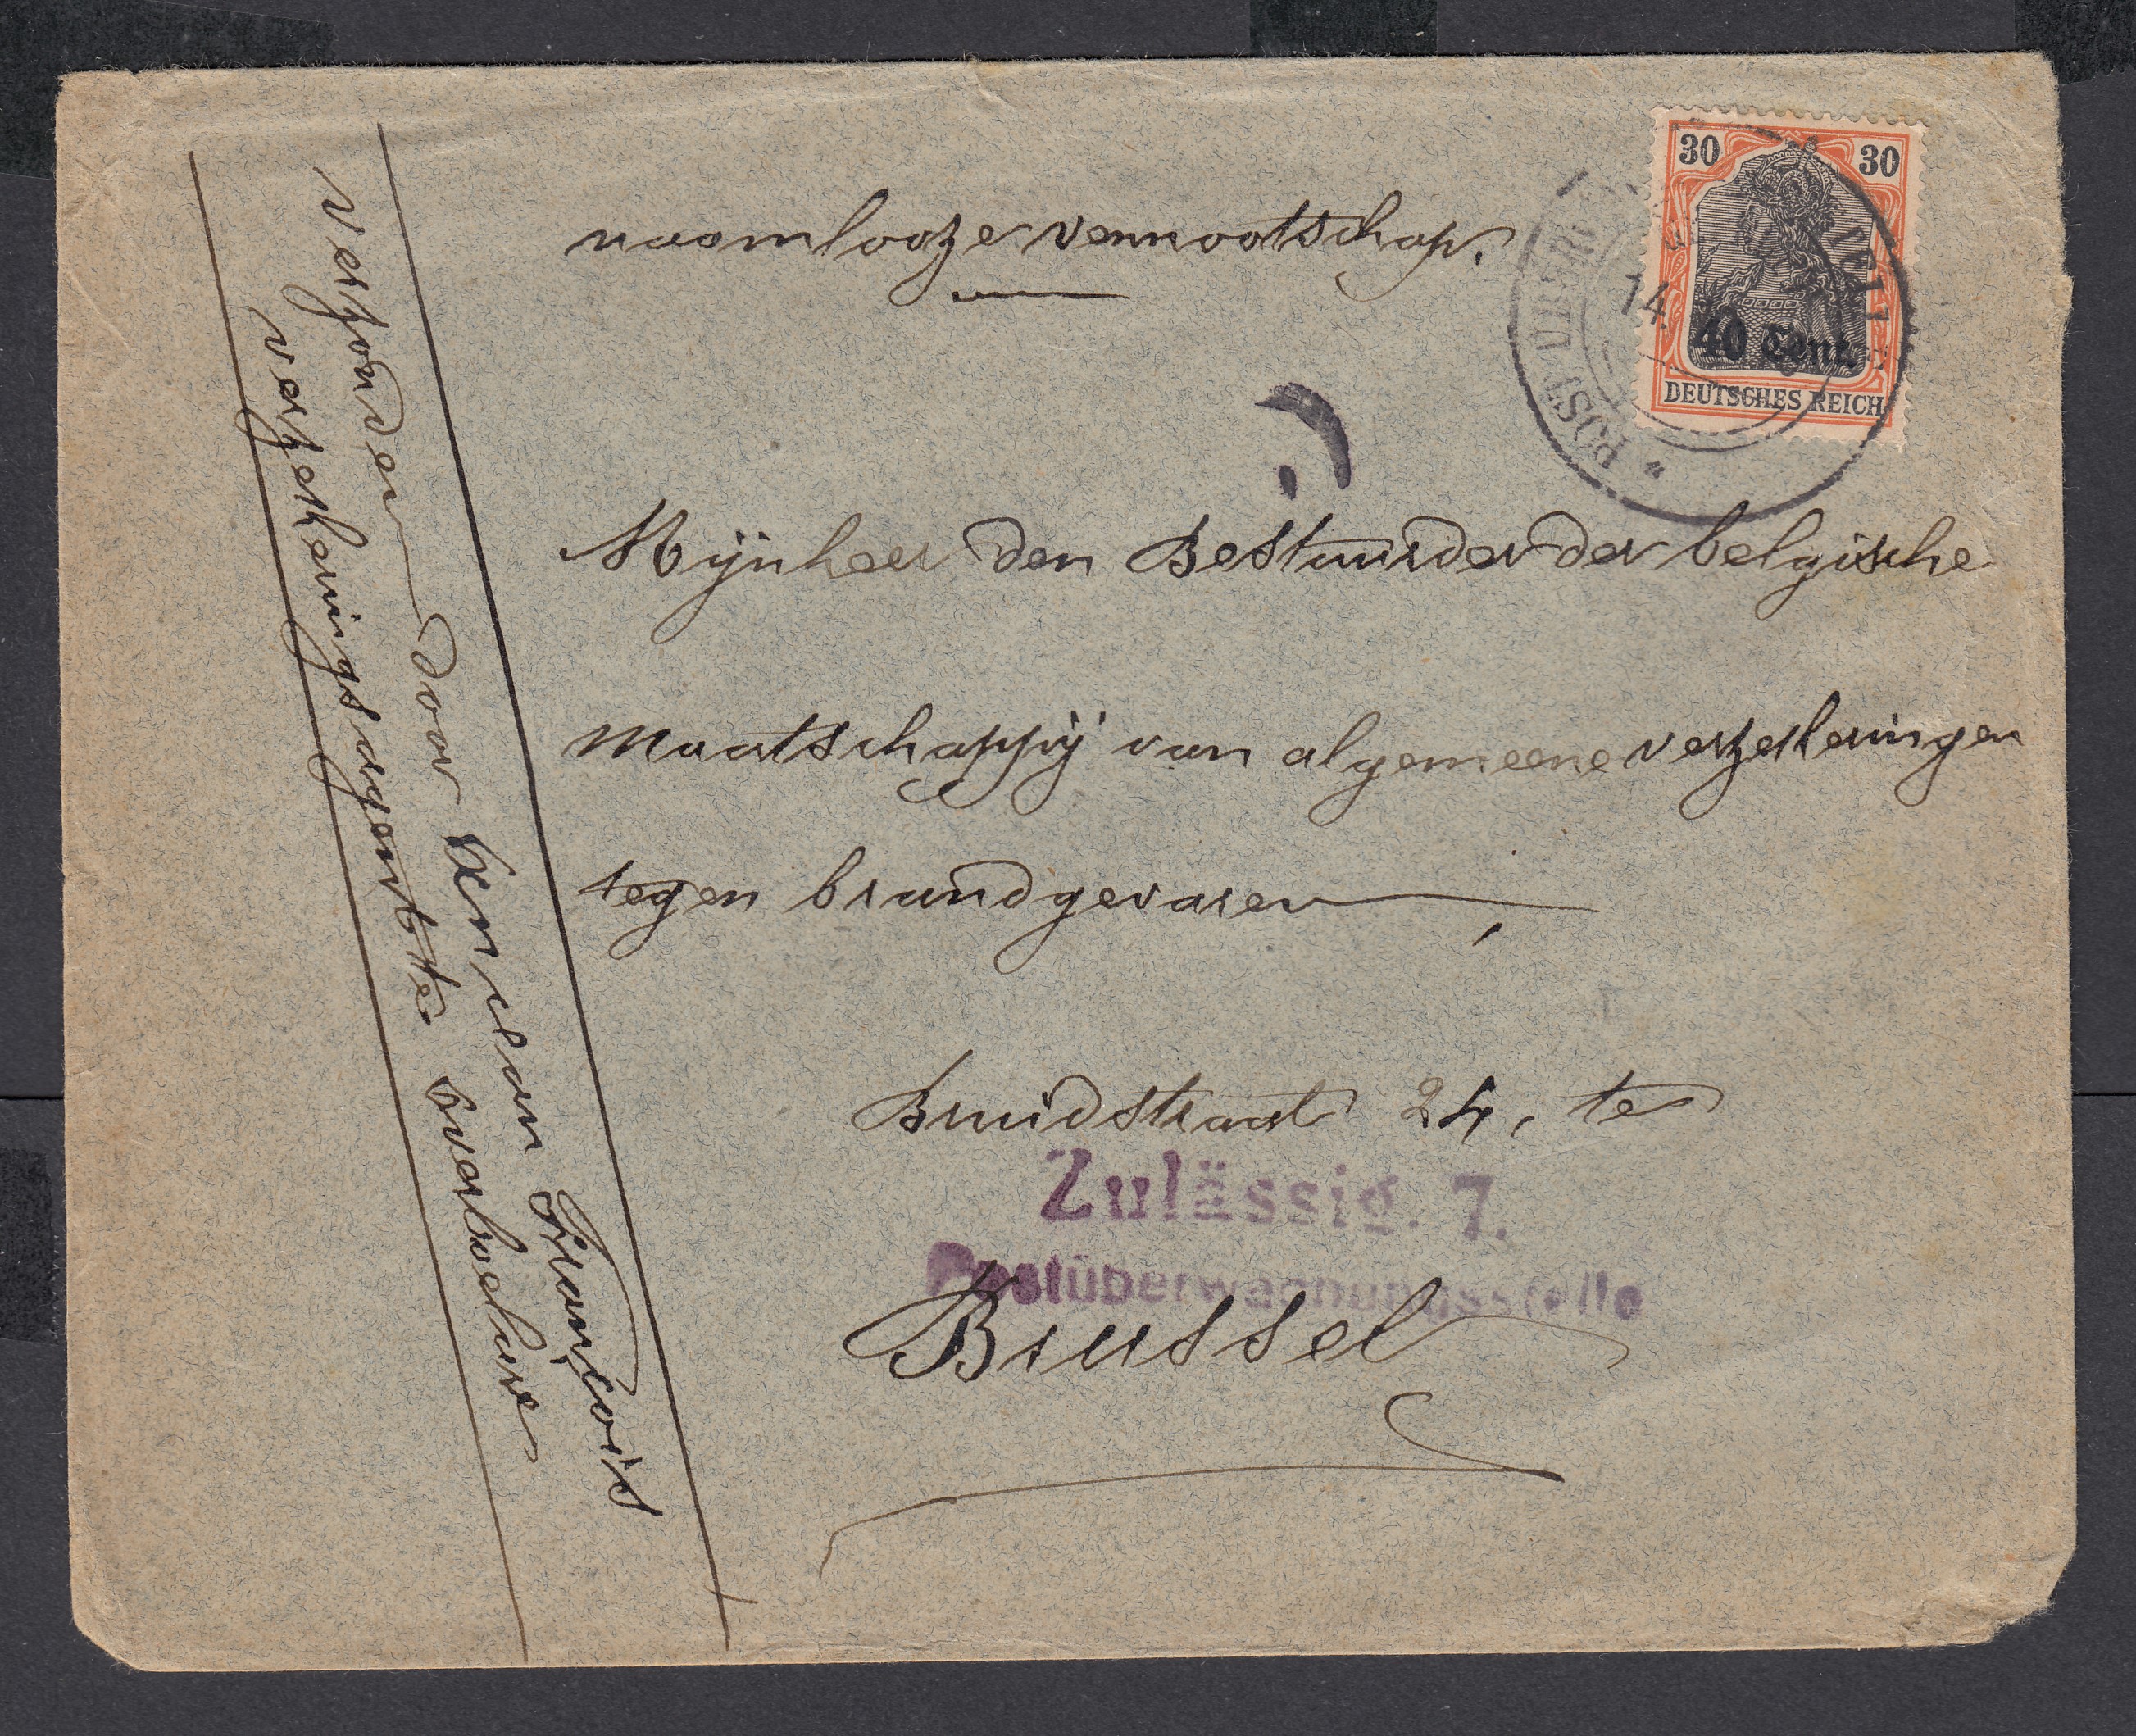 naamlooze vennootschap.
30 30
40 Cent.
DEUTSCHES REICH
POST ÜBERW
14.
Mijnheer den Bestuurder der belgische
maatschappij van algemeene verzekeringen
tegen brandgevaren,
Bruidstraat 24, te
Zulässig. 7.
Postüberwachungsstelle
Brussel
verzonden door François
verzekeringsagent te Everbecq